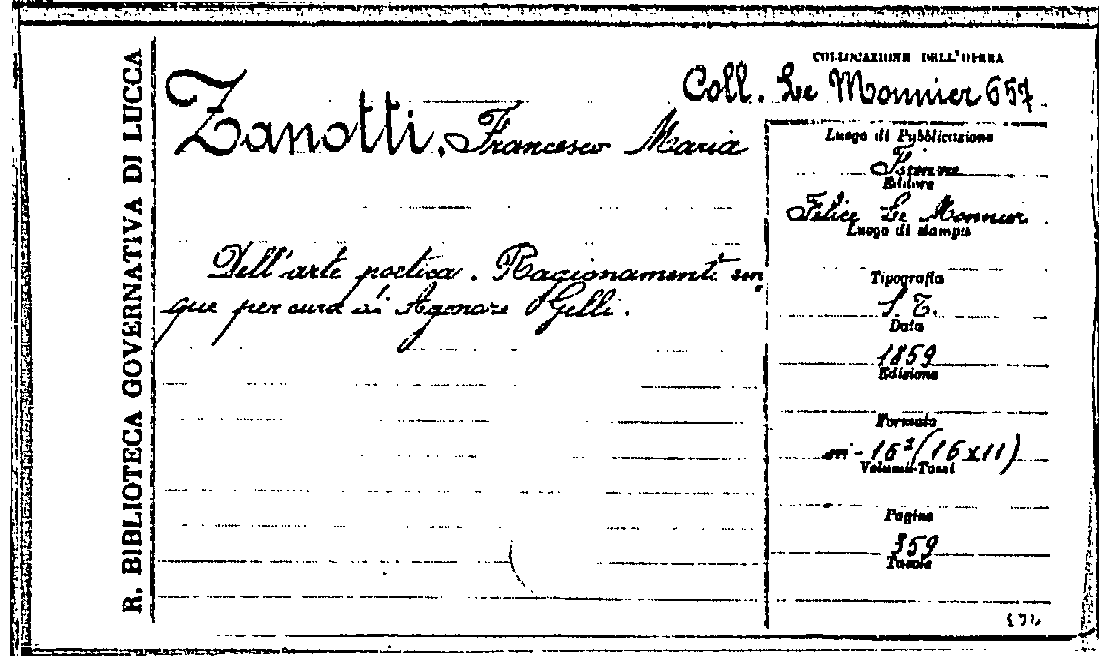 R. BIBLIOTECA GOVERNATIVA DI LUCCA
COLLOCAZIONE DELL'OPERA
Coll. Le Monnier 657
Zanotti, Francesco Maria
Dell'arte poetica. Ragionamenti cin
que per cura di Agenore Gelli.
Luogo di Pubblicazione
Firenze
Editore
Felice Le Monnier
Luogo di stampa
Tipografia
S. T.
Data
1859
Edizione
Formato
in-16° (16x11)
Volume-Tomi
Pagine
359
Tavole